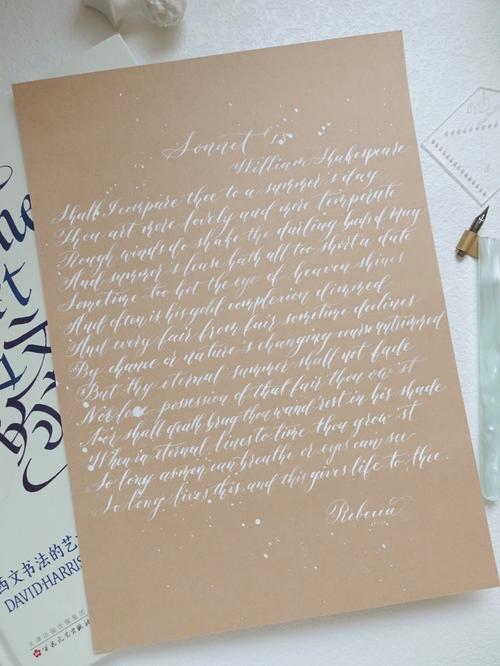 Sonnet 18
William Shakespeare
Shall I compare thee to a summer's day
Thou art more lovely and more temperate
Rough winds do shake the darling buds of May
And summer's lease hath all too short a date
Sometime too hot the eye of heaven shines
And often is his gold complexion dimmed
And every fair from fair sometime declines
By chance or nature's changing course untrimmed
But thy eternal summer shall not fade
Nor lose possession of that fair thou ow'st
Nor shall death brag thou wand'rest in his shade
When in eternal lines to time thou grow'st
So long as men can breathe or eyes can see
So long lives this and this gives life to thee
Rebecca
西文书法的艺
DAVID HARRIS
天津出版传媒集团